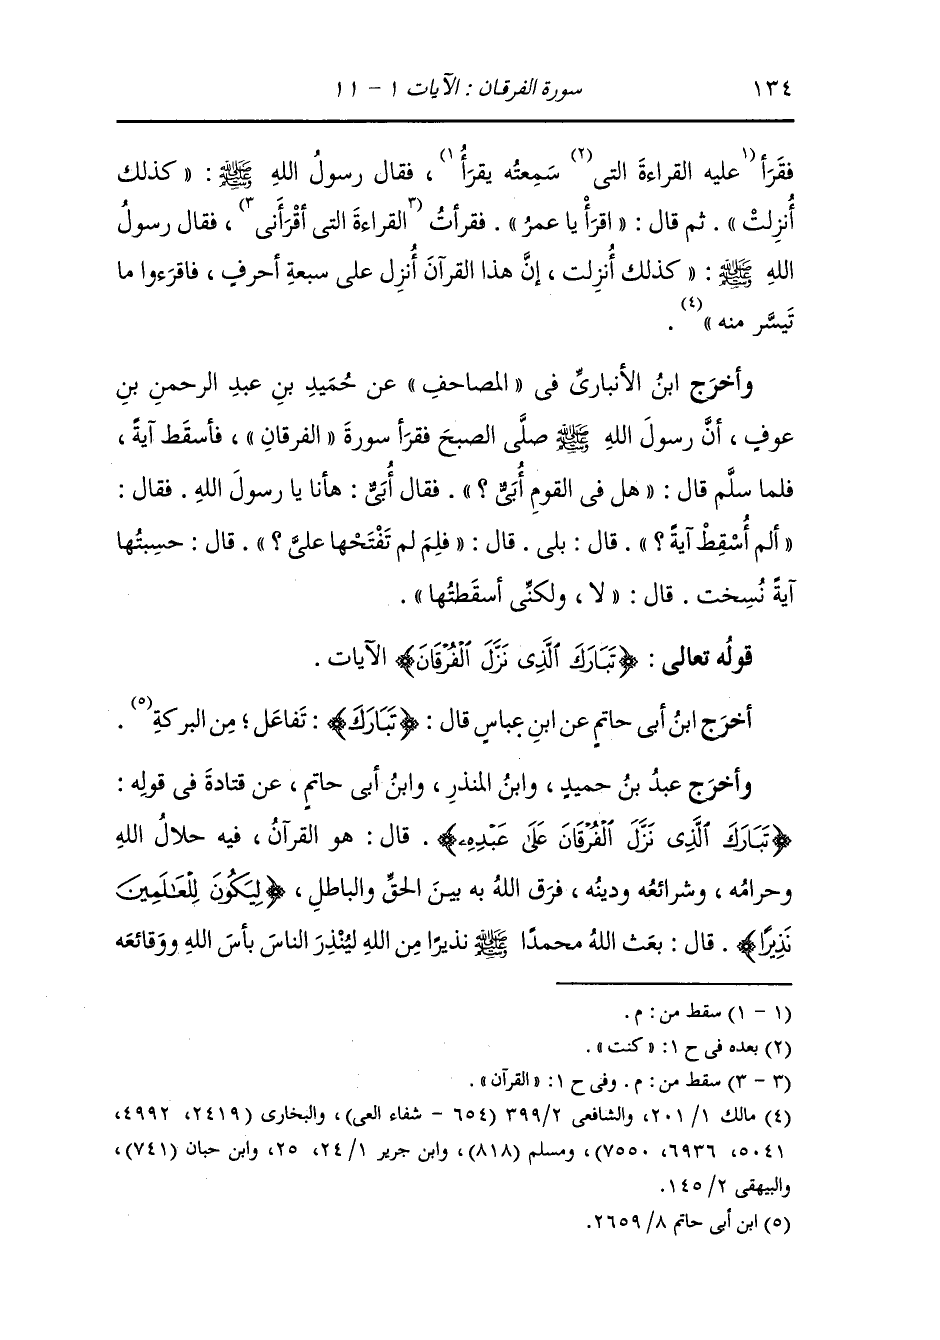 ١٣٤ سورة الفرقان : الآيات ١ - ١١
فقَرَأ (١)عليه القراءةَ التى(٢) سَمِعتُه يقرَأُ(١) ، فقال رسولُ اللهِ ﷺ : « كذلك
أُنزِلتْ » . ثم قال : « اقرَأْ يا عمرُ » . فقرأتُ (٣القراءةَ التى أقْرَأَنى٣) ، فقال رسولُ
اللهِ ﷺ : « كذلك أُنزِلت ، إنَّ هذا القرآنَ أُنزِل على سبعةِ أحرفٍ ، فاقرَءوا ما
تَيسَّر منه »(٤) .
وأخرَج ابنُ الأنبارىِّ فى « المصاحفِ » عن حُمَيدِ بنِ عبدِ الرحمنِ بنِ
عوفٍ ، أنَّ رسولَ اللهِ ﷺ صلَّى الصبحَ فقرَأ سورةَ « الفرقانِ » ، فأسقَط آيةً ،
فلما سلَّم قال : « هل فى القومِ أُبَىٌّ ؟ » . فقال أُبَىٌّ : هأنا يا رسولَ اللهِ . فقال :
« ألم أُسْقِطْ آيةً ؟ » . قال : بلى . قال : « فلِمَ لم تَفْتَحْها علىَّ ؟ » . قال : حسِبتُها
آيةً نُسِخت . قال : « لا ، ولكنِّى أسقَطتُها » .
قولُه تعالى : ﴿تَبَارَكَ ٱلَّذِى نَزَّلَ ٱلْفُرْقَانَ﴾ الآيات .
أخرَج ابنُ أبى حاتمٍ عن ابنِ عباسٍ قال : ﴿تَبَارَكَ﴾ : تَفاعَل ؛ مِن البركةِ(٥) .
وأخرَج عبدُ بنُ حميدٍ ، وابنُ المنذرِ ، وابنُ أبى حاتمٍ ، عن قتادةَ فى قولِه :
﴿تَبَارَكَ ٱلَّذِى نَزَّلَ ٱلْفُرْقَانَ عَلَىٰ عَبْدِهِۦ﴾ . قال : هو القرآنُ ، فيه حلالُ اللهِ
وحرامُه ، وشرائعُه ودينُه ، فرَق اللهُ به بينَ الحقِّ والباطلِ ، ﴿لِيَكُونَ لِلْعَٰلَمِينَ
نَذِيرًا﴾ . قال : بعَث اللهُ محمدًا ﷺ نذيرًا مِن اللهِ ليُنْذِرَ الناسَ بأسَ اللهِ ووَقائعَه
(١ - ١) سقط من : م .
(٢) بعده فى ح ١ : « كنت » .
(٣ - ٣) سقط من : م . وفى ح ١ : « القرآن » .
(٤) مالك ١/ ٢٠١، والشافعى ٣٩٩/٢ (٦٥٤ - شفاء العى)، والبخارى (٢٤١٩، ٤٩٩٢،
٥٠٤١، ٦٩٣٦، ٧٥٥٠)، ومسلم (٨١٨)، وابن جرير ١/ ٢٤، ٢٥، وابن حبان (٧٤١)،
والبيهقى ٢/ ١٤٥.
(٥) ابن أبى حاتم ٨/ ٢٦٥٩.